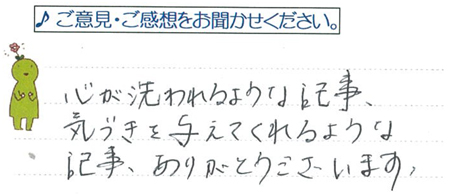 ♪ご意見・ご感想をお聞かせください。
心が洗われるような記事、
気づきを与えてくれるような
記事、ありがとうございます,